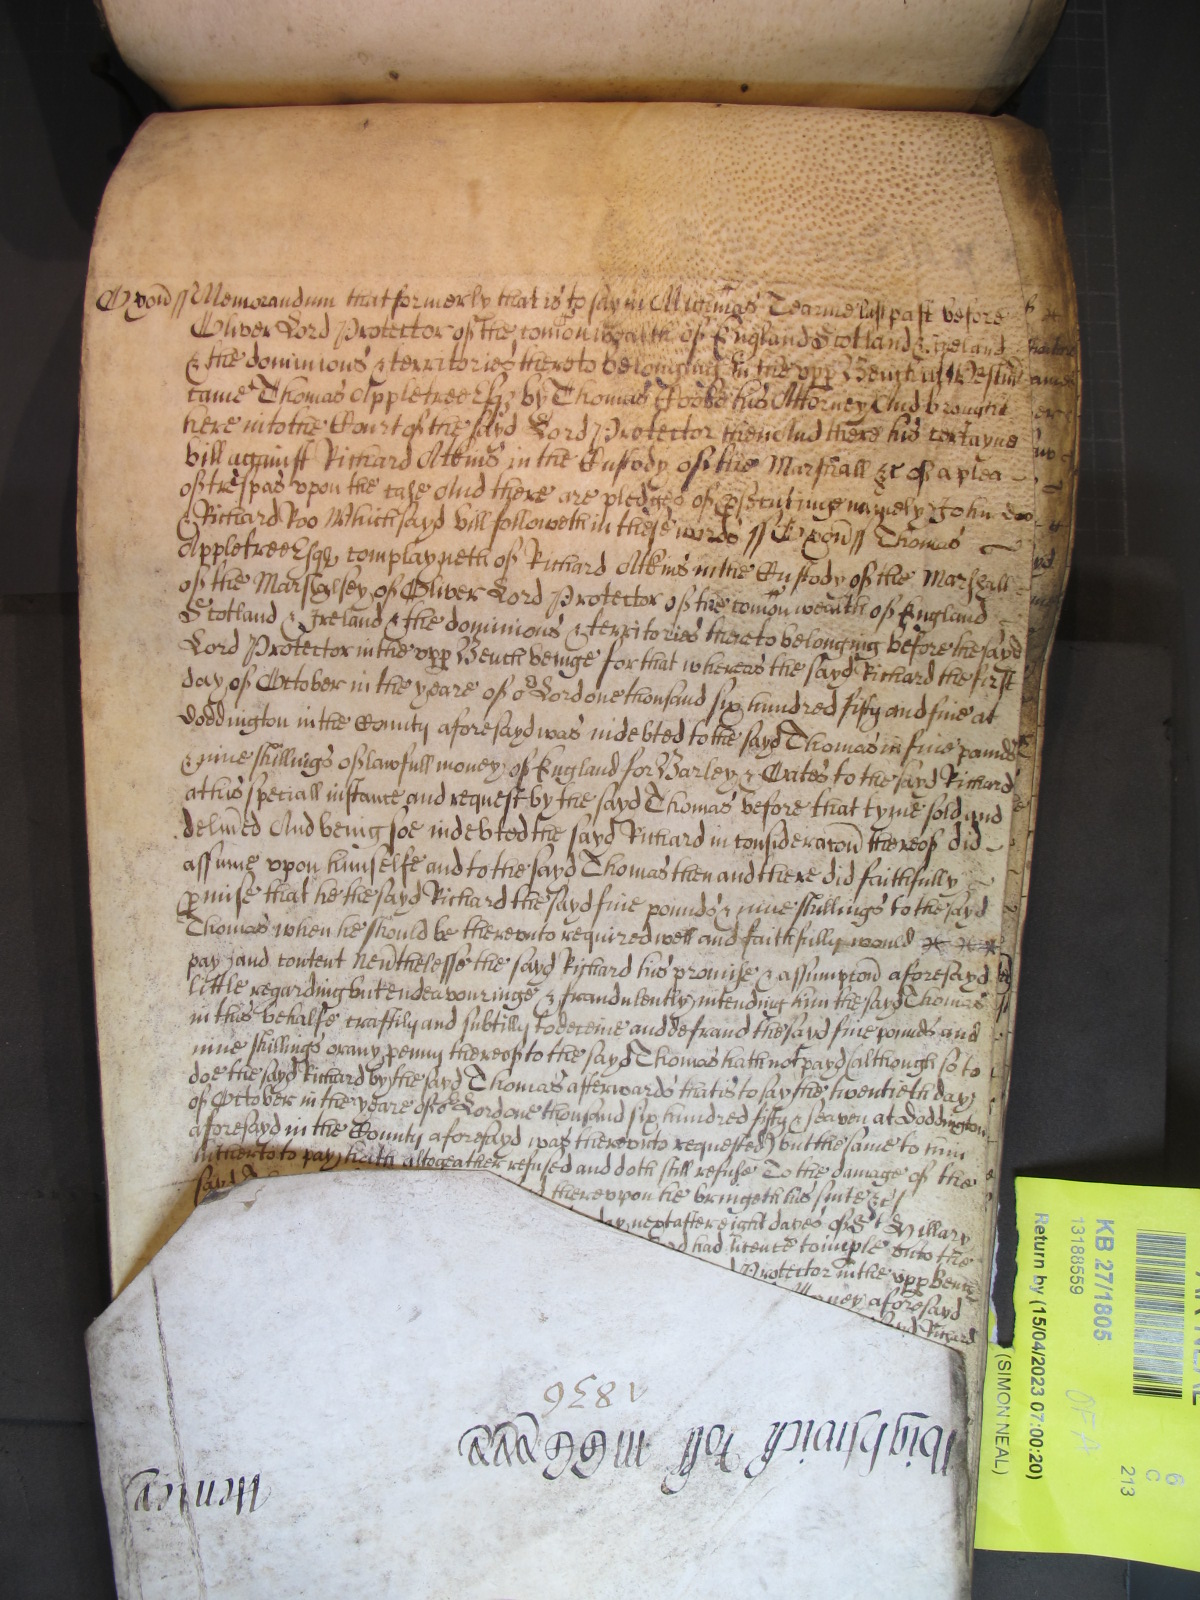 Oxon ss Memorandum that formerly that is to say in Michmas Tearme last past before
Oliver Lord Protector of the comon wealth of England Scotland & Ireland
& the dominions & territories thereto belonging in the upp Bench at Westmr
came Thomas Appletree Esq by Thomas his Attorney And brought
here into the Court of the sayd Lord Protector then And there his certayne
bill against Richard Atkins in the Custody of the Marshall &c of a plea
of trespas upon the case And there are pledges of psecutinge namely John Doo
& Richard Roo Which sayd bill followeth in these words ss Oxon ss Thomas
Appletree Esqr complayneth of Richard Atkins in the Custody of the Marshall
of the Marshalsey of Oliver Lord Protector of the comon wealth of England
Scotland & Ireland & the dominions & territories thereto belonging before the sayd
Lord Protector in the upp Bench beinge for that whereas the sayd Richard the first
day of October in the yeare of or Lord one thousand six hundred fifty and five at
Doddington in the County aforesayd was indebted to the sayd Thomas in five pounds
& nine shillings of lawfull money of England for Barley & Oates to the sayd Richard
at his speciall instance and request by the sayd Thomas before that tyme sold and
delived And being soe indebted the sayd Richard in consideracon thereof did
assume upon himselfe and to the sayd Thomas then and there did faithfully
pmise that he the sayd Richard the sayd five pounds & nine shillings to the sayd
Thomas when he should be thereunto required well and faithfully would
pay and content nevthelesse the sayd Richard his promise & assumpcon aforesayd
little regarding but endeavouringe & fraudulently intending him the sayd Thomas
in this behalfe craftily and subtilly to deceive and defraud the sayd five pounds and
nine shillings or any penny thereof to the sayd Thomas hath not payd (although so to
doe the sayd Richard by the sayd Thomas afterwards that is to say the twentieth day
of October in the yeare of or Lord one thousand six hundred fifty & seaven at Doddington
aforesayd in the County aforesayd was thereunto requested) but the same to him
hitherto to pay hath altogeather refused and doth still refuse To the damage of the
sayd
thereupon he bringeth his suite &c
day next after eight dayes of St Hillary
had licence to imple unto the
Protector in the upp Bench
aforesayd
sayd Richard
1836
Wightwick Roll
Henley
KB 27/1805
13188559
Return by (15/04/2023 07:00:20)
(SIMON NEAL)
6
C
213